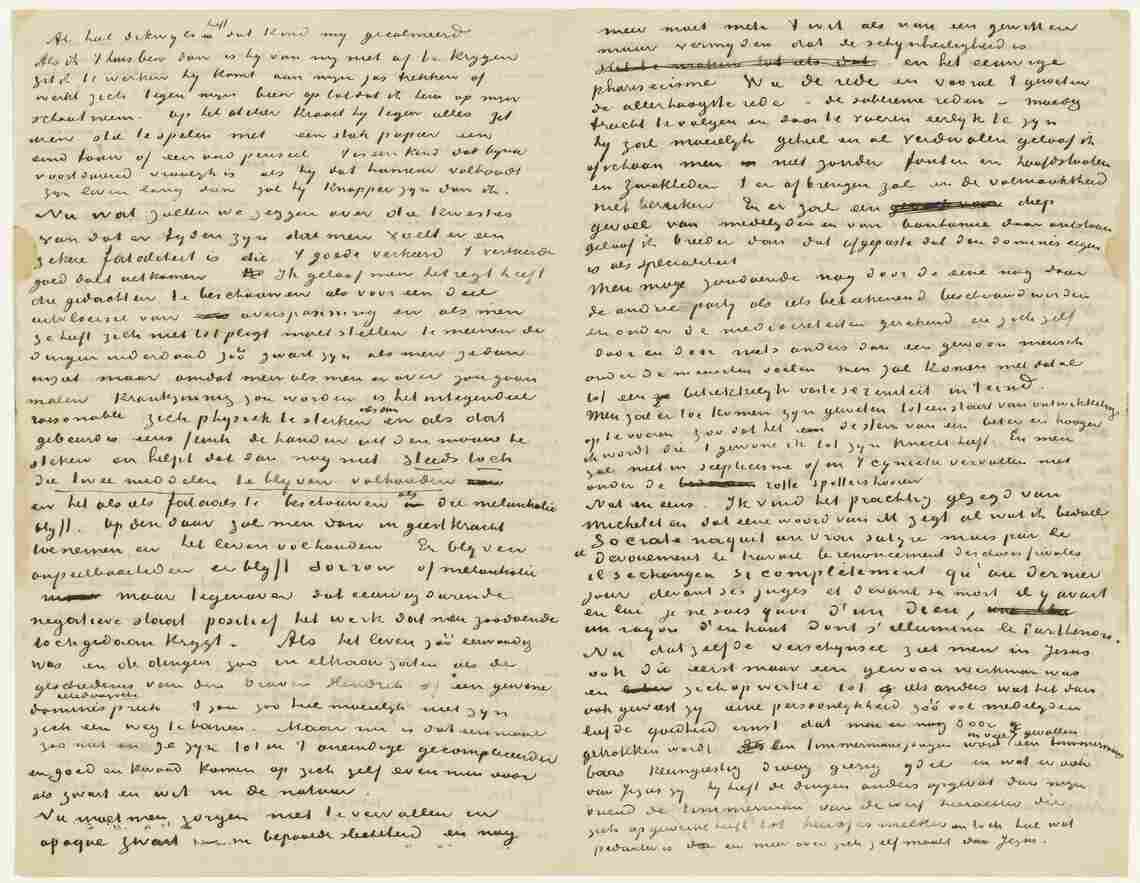 Al heel dikwyls heeft dat kind my gecalmeerd
Als ik t'huis ben dan is hy van my niet af te krygen
zit ik te werken hy komt aan myn jas trekken of
werkt zich tegen myn been op totdat ik hem op myn
schoot neem. Op het atelier kraait hy tegen alles zit
een stil te spelen met een stuk papier een
eind touw of een oud penseel 't is een kind dat byna
voortdurend vroolyk is als hy dat humeur volhoudt
zyn leven lang dan zal hy knapper zyn dan ik.
Nu wat zullen we zeggen over die kwestie
van dat er tyden zyn dat men voelt er een
zekere fataliteit is die 't goede verkeerd 't verkeerde
goed doet uitkomen Ik geloof men het regt heeft
die gedachten te beschouwen als voor een deel
uitvloeisel van overspanning en als men
ze heeft zich niet tot pligt moet stellen te meenen de
dingen inderdaad zóó zwart zyn als men ze dan
inziet maar omdat men als men er over zou gaan
malen krankzinnig zou worden is het integendeel
raisonable zich physiek te sterken alsdan en als dat
gebeurd is eens flink de handen uit den mouw te
steken en helpt dat dan nog niet steeds toch
die twee middelen te blyven volhouden
en het als iets fataals te beschouwen als die melancholie
blyft. Op den duur zal men dan in geestkracht
toenemen en het leven volhouden Er blyven
onpeilbaarheden er blyft sorrow of melancholie
maar tegenover dat eeuwigdurende
negatieve staat positief het werk dat men zoodoende
toch gedaan krygt. Als het leven zóó eenvoudig
was en de dingen zoo in elkaar zaten als de
geschiedenis van den braven Hendrik of een gewone
dominéspreek 't zou zoo heel moeielyk niet zyn
zich een weg te banen. Maar nu is dat eenmaal
zoo niet en ze zyn tot in 't oneindige gecompliceerder
en goed en kwaad komen op zich zelf evenmin voor
als zwart en wit in de natuur.
Nu moet men zorgen niet te vervallen in
opaque zwart in bepaalde slechtheid en nog
meer moet men 't wit als van een gewitten
muur vermyden dat de schynheiligheid is
en het eeuwige
phariseisme Wie de rede en vooral 't geweten
de allerhoogste rede – de sublieme reden – moedig
tracht te volgen en door te voeren eerlyk te zyn
hy zal moeielyk geheel en al verdwalen geloof ik
ofschoon men niet zonder fouten en hoofdstooten
en zwakheden 't er af brengen zal en de volmaaktheid
niet bereiken En er zal een diep
gevoel van medelyden en van bonhomie door ontstaan
geloof ik breeder dan dat afgepaste dat den dominés eigen
is als specialiteit
Men moge zoodoende nog door de eene nog door
de andere party als iets beteekenend beschouwd worden
en onder de mediocriteiten gerekend en zich zelf
door en door niets anders dan een gewoon mensch
onder de menschen voelen men zal komen met dat al
tot een betrekkelyk vaste sereniteit in 't eind.
Men zal er toe komen zyn geweten tot een staat van ontwikkeling
op te voeren zoo dat het de stem van een beter en hooger
ik wordt die 't gewone ik tot zyn knecht heeft. En men
zal niet in scepticisme of in 't cynieke vervallen niet
onder de rotte spotters hooren
Niet in eens. Ik vind het prachtig gezegd van
Michelet en dat eene woord van M zegt al wat ik bedoel
Socrate naquit un vrai satyre mais par le
devouement le travail le renoncement des choses frivoles
il se changea si complètement qu'au dernier
jour devant ses juges et devant sa mort il y avait
en lui je ne sais quoi d'un dieu,
un rayon d'en haut dont s'illumina le Parthenon.
Nu dat zelfde verschynsel ziet men in Jesus
ook die eerst maar een gewoon werkman was
en zich opwerkte tot iets anders wat het dan
ook geweest zy eene persoonlykheid zóó vol medelyden
liefde goedheid ernst dat men er nog door
getrokken wordt In veel gevallen een timmermansjongen word een timmermans
baas kleingeestig droog gierig ydel en wat er ook
van Jesus zy hy heeft de dingen anders opgevat dan myn
vriend de timmerman van de werf hierachter die
zich opgewerkt heeft tot huisjesmelker en toch heel wat
pedanter is en meer over zich zelf maakt dan Jesus.